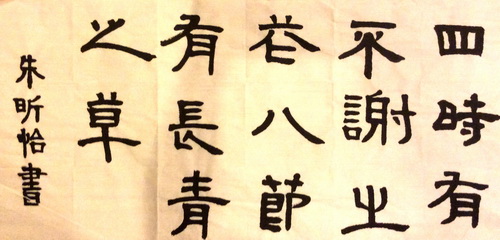 四時有
不謝之
花八節
有長青
之草
朱昕怡書